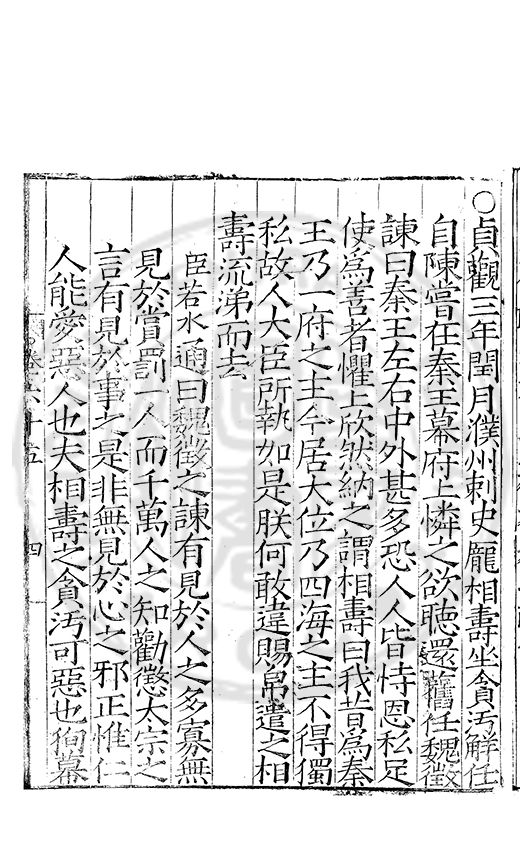 ○貞觀三年閏月濮州刺史龐相壽坐貪汚解任
自陳嘗在秦王幕府上憐之欲聽還舊任魏徵
諫曰秦王左右中外甚多恐人人皆恃恩私足
使爲善者懼上欣然納之謂相壽曰我昔爲秦
王乃一府之主今居大位乃四海之主不得獨
私故人大臣所執如是朕何敢違賜帛遣之相
壽流涕而去
臣若水通曰魏徵之諫有見於人之多寡無
見於賞罰一人而千萬人之知勸懲太宗之
言有見於事之是非無見於心之邪正惟仁
人能愛惡人也夫相壽之貪汚可惡也狥幕
卷六十五
四